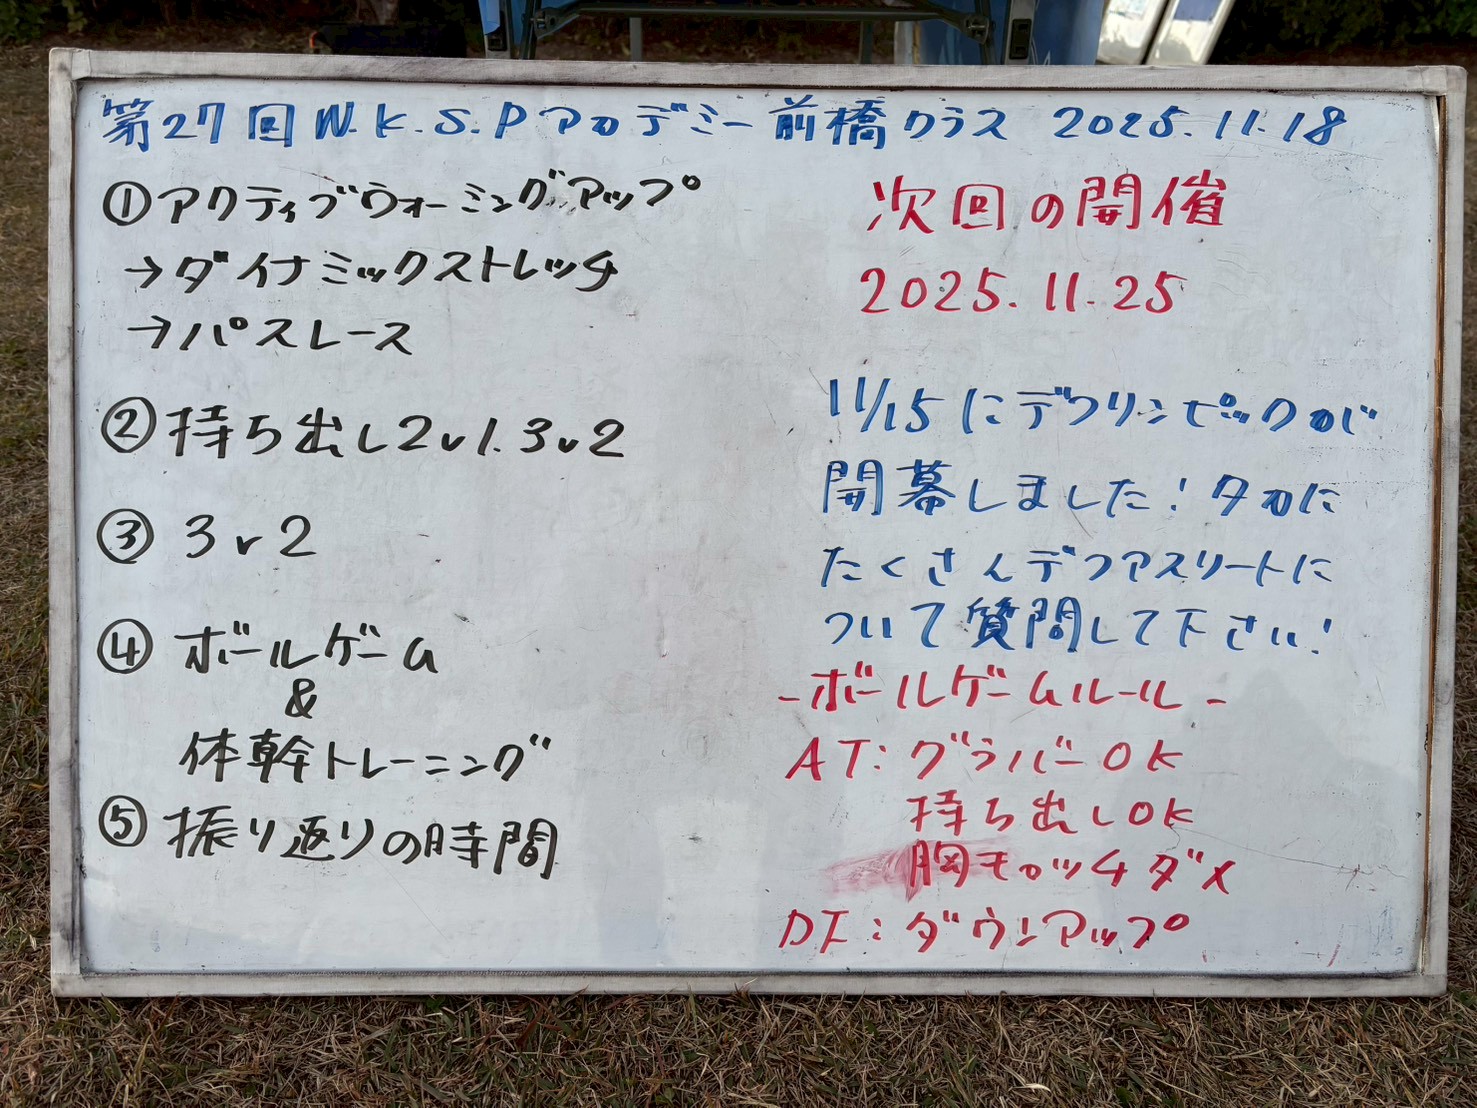 第27回 W.K.S.Pアカデミー前橋クラス 2025.11.18
①アクティブウォーミングアップ
→ダイナミックストレッチ
→パスレース
②持ち出し2v1.3v2
③ 3v2
④ ボールゲーム
&
体幹トレーニング
⑤ 振り返りの時間
次回の開催
2025.11.25
11/15にデフリンピックが
開幕しました!タカに
たくさんデフアスリートに
ついて質問して下さい!
-ボールゲームルール-
AT:グラバーOK
持ち出しOK
胸モロッチダメ
DF:ダウンアップ